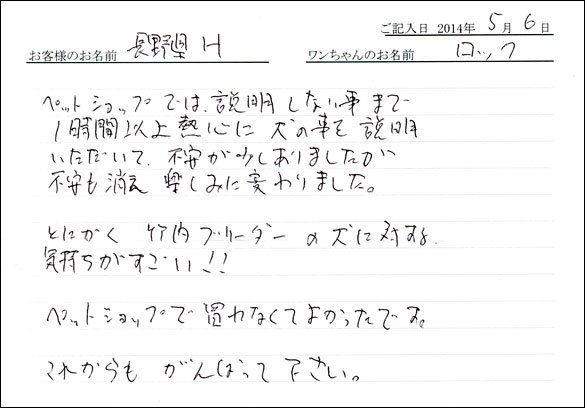 ご記入日 2014年 5月 6日
お客様のお名前 長野県 H ワンちゃんのお名前 ロック
ペットショップでは、説明しない事まで
1時間以上熱心に 犬の事を 説明
いただいて、不安が少しありましたが
不安も消え 楽しみに変わりました。
とにかく 竹内ブリーダー の犬に対する
気持ちがすごい!!
ペットショップで買わなくてよかったです。
これからも がんばって下さい。